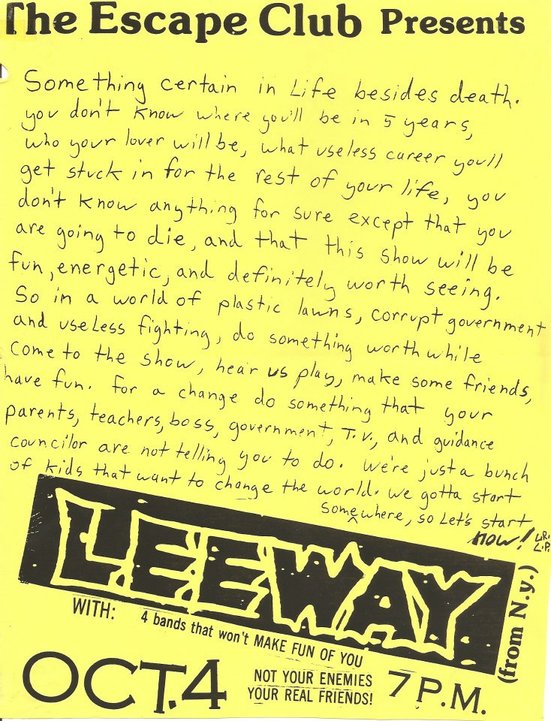 The Escape Club Presents
Something certain in Life besides death.
you don't know where you'll be in 5 years,
who your lover will be, what useless career you'll
get stuck in for the rest of your life, you
don't know anything for sure except that you
are going to die, and that this show will be
fun, energetic, and definitely worth seeing.
So in a world of plastic lawns, corrupt government
and useless fighting, do something worth while
Come to the show, hear us play, make some friends,
have fun. for a change do something that your
parents, teachers, boss, government, T.V., and guidance
councilor are not telling you to do. we're just a bunch
of kids that want to change the world. we gotta start
somewhere, so Let's start
now!
LEEWAY
(from N.y.)
WITH: 4 bands that won't MAKE FUN OF YOU
NOT YOUR ENEMIES
YOUR REAL FRIENDS!
OCT.4
7 P.M.